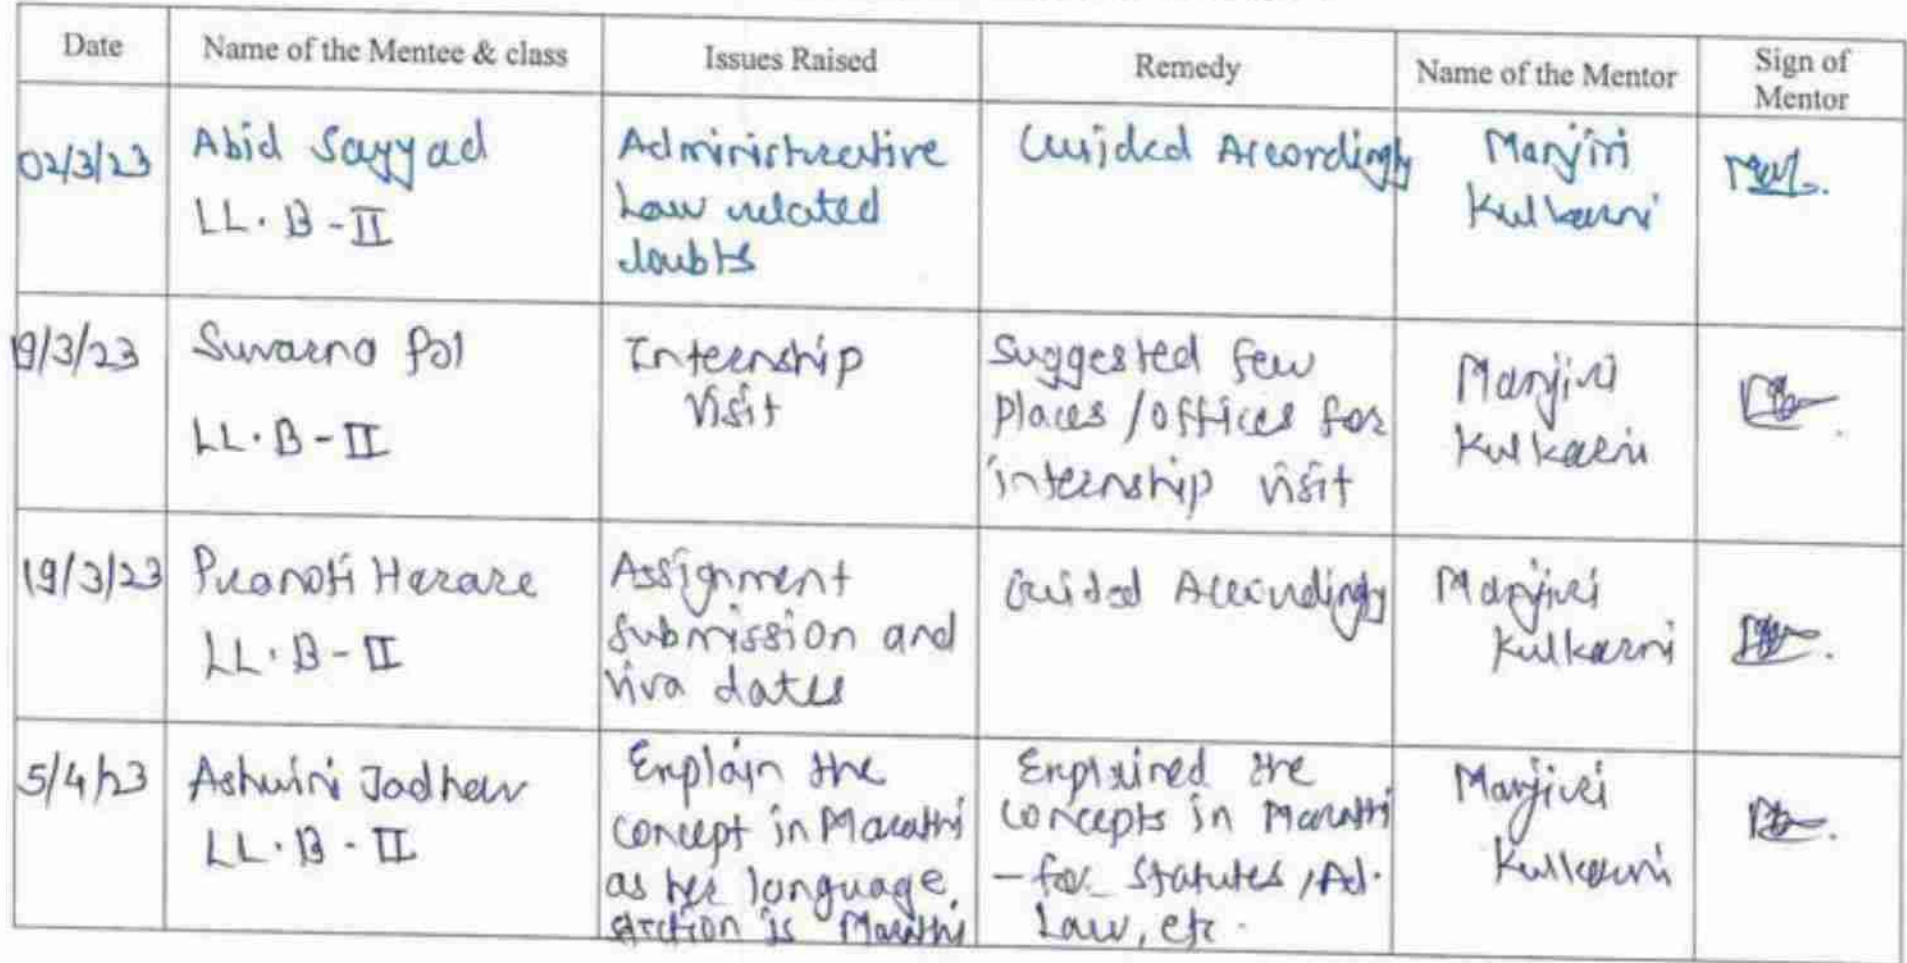 Date
Name of the Mentee & class
Issues Raised
Remedy
Name of the Mentor
Sign of
Mentor
02/3/23
Abid Sayyad
LL.B-II
Administrative
Law related
doubts
Guided Accordingly
Manjiri
Kulkarni
9/3/23
Suvarna Pol
LL.B-II
Internship
Visit
Suggested few
places/offices for
internship visit
Manjiri
Kulkarni
19/3/23
Pranoti Harare
LL.B-II
Assignment
submission and
viva dates
Guided Accordingly
Manjiri
Kulkarni
5/4/23
Ashwini Jadhav
LL.B-II
Explain the
concept in Marathi
as her language
section is Marathi
Explained the
concepts in Marathi
- for Statutes, Ad.
Law, etc.
Manjiri
Kulkarni